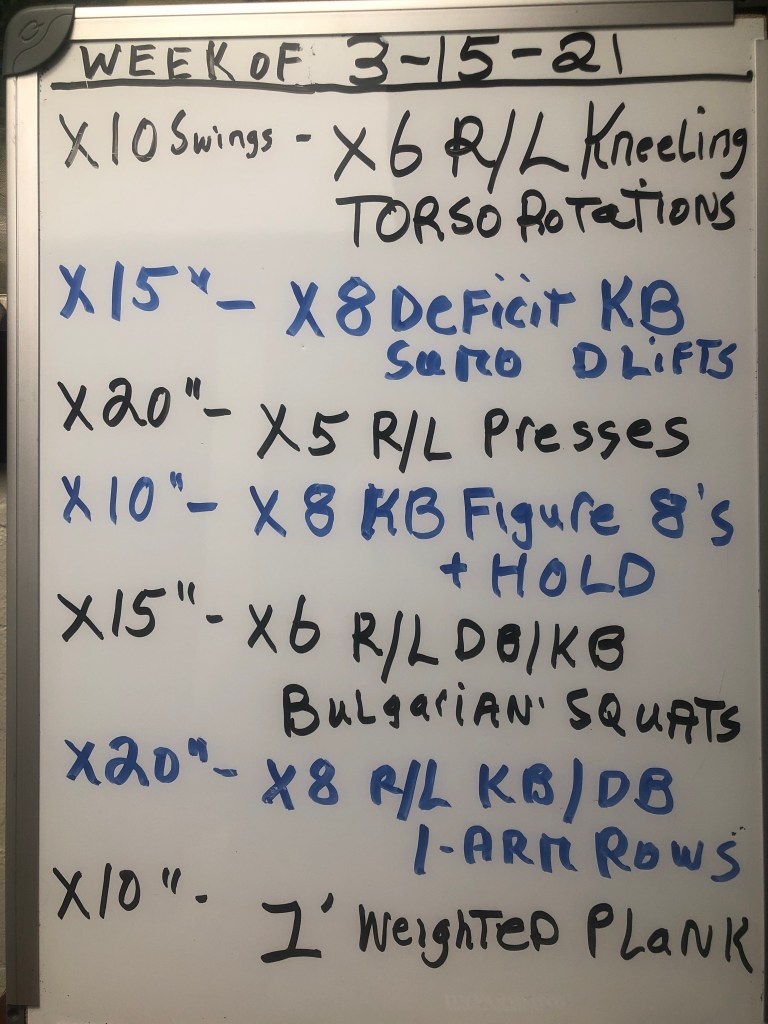 WEEK OF 3-15-21
X10 Swings - X6 R/L Kneeling
TORSO ROTATIONS
X15" - X8 DeFicit KB
SUMO DLiFTS
X20" - X5 R/L Presses
X10" - X8 KB Figure 8's
+ HOLD
X15" - X6 R/L DB/KB
BulgariAN SQUATS
X20" - X8 R/L KB/DB
1-ARM ROWS
X10" - 1' WeigHTeD PLaNK